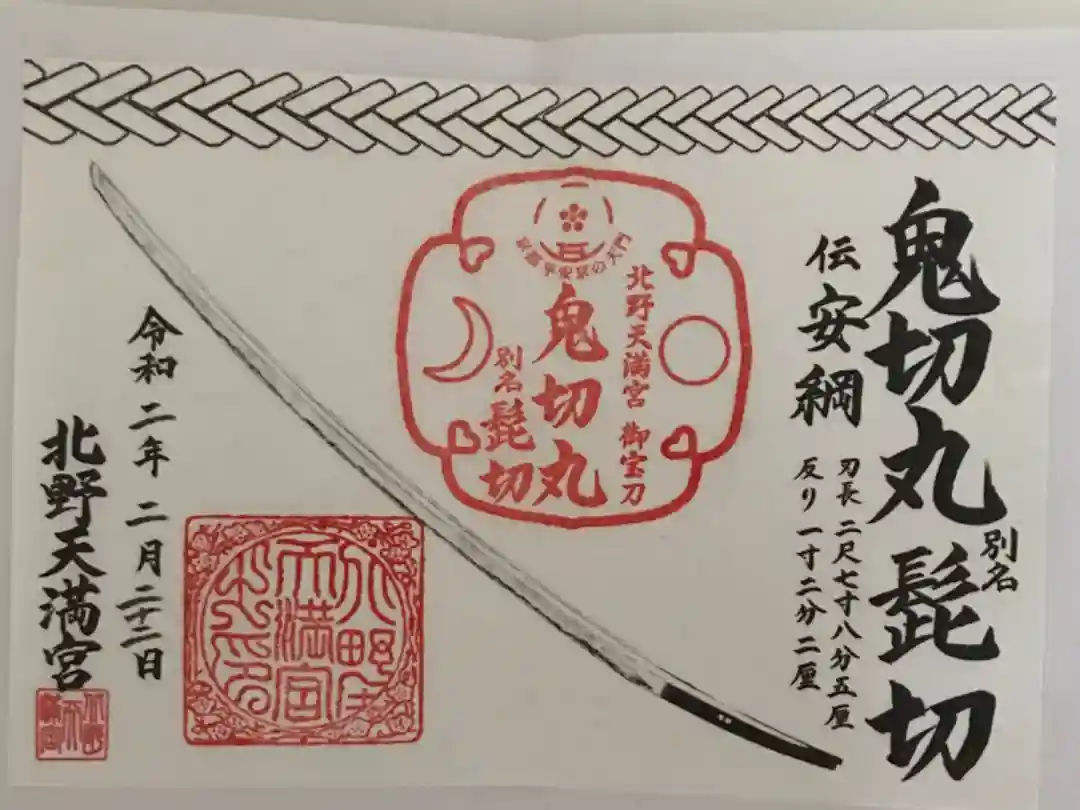 鬼切丸 別名 髭切
伝安綱
刃長 二尺七寸八分五厘
反り 一寸二分二厘
平安京の天門
北野天満宮 御宝刀
鬼切丸
別名 髭切
令和二年 二月二十二日
北野天満宮